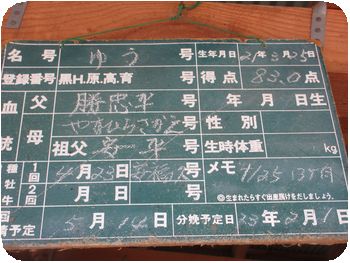 名号 ゆう 号 生年月日 21年3月25日
登録番号 黒H.原.高.育 号 得点 83.0点
血 父 勝忠平 号 年 月 日生
統 母 号 性別
祖父 安平 号 生時体重 kg
種 1回 4月23日 号 メモ
牡 2回 月 日 号
牛 ◎生まれたらすぐ出産届けをだしましょう。
5月14日 分娩予定日 23年2月1日